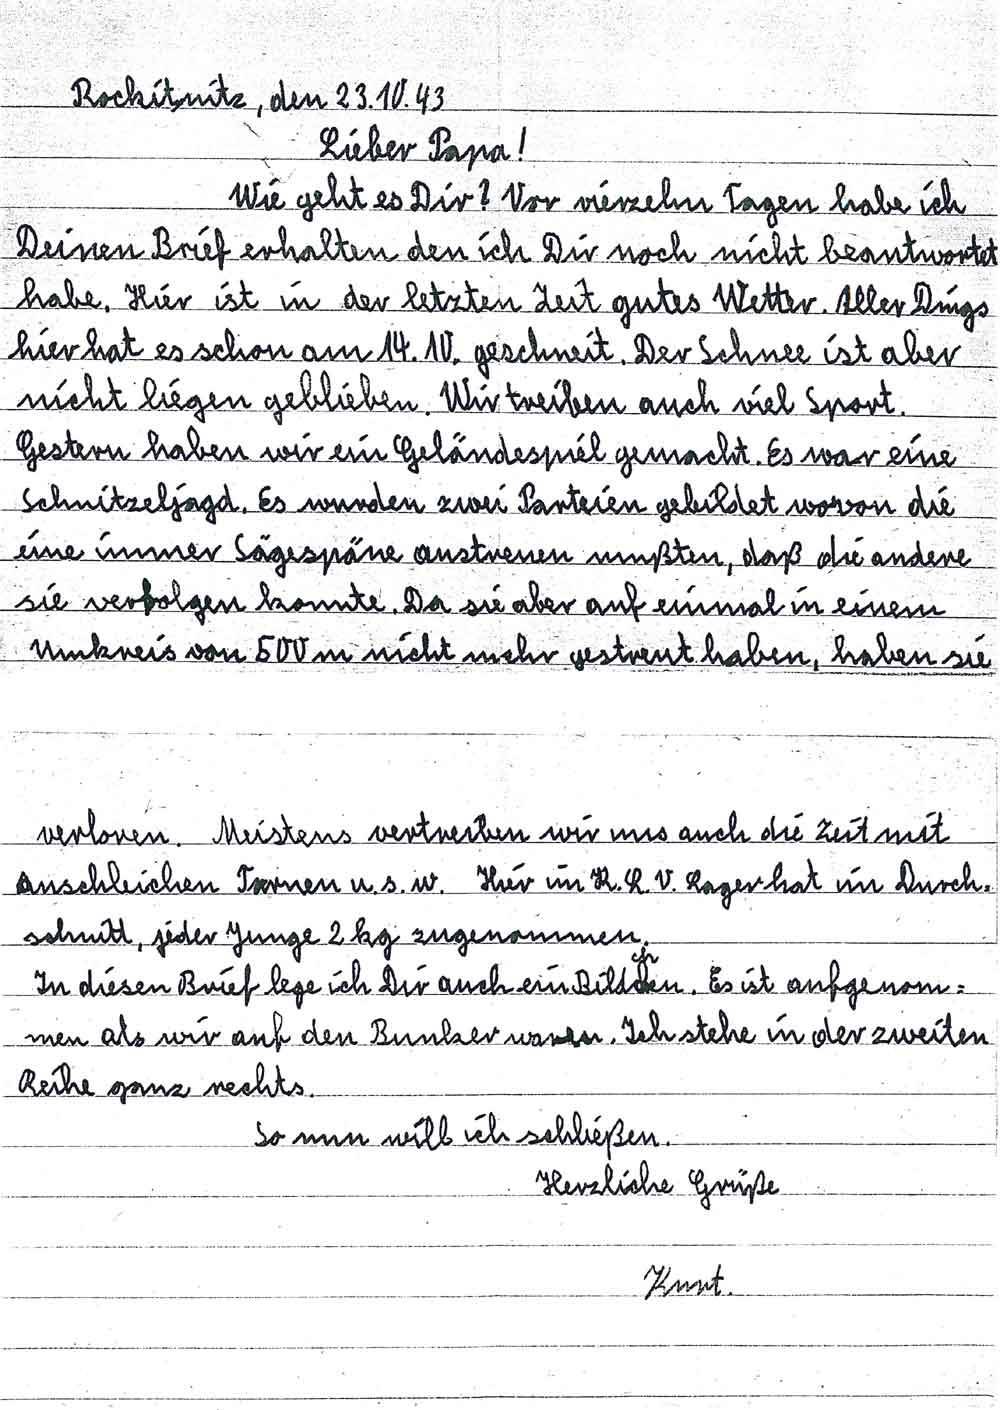 Rockitnitz, den 23.10.43
Lieber Papa!
Wie geht es Dir? Vor vierzehn Tagen habe ich
Deinen Brief erhalten den ich Dir noch nicht beantwortet
habe. Hier ist in der letzten Zeit gutes Wetter. Aller Dings
hier hat es schon am 14.10. geschneit. Der Schnee ist aber
nicht liegen geblieben. Wir treiben auch viel Sport.
Gestern haben wir ein Geländespiel gemacht. Es war eine
Schnitzeljagd. Es wurden zwei Parteien gebildet wovon die
eine immer Sägespäne austreuen mußten, daß die andere
sie verfolgen konnte. Da sie aber auf einmal in einem
Umkreis von 500 m nicht mehr gestreut haben, haben sie
verloren. Meistens vertreiben wir uns auch die Zeit mit
Anschleichen Tarnen u.s.w. Hier im K.L.V. Lager hat im Durch=
schnitt, jeder Junge 2 kg zugenommen.
In diesen Brief lege ich Dir auch ein Bildchen. Es ist aufgenom=
men als wir auf den Bunker waren. Ich stehe in der zweiten
Reihe ganz rechts.
So nun will ich schließen.
Herzliche Grüße
Kurt.